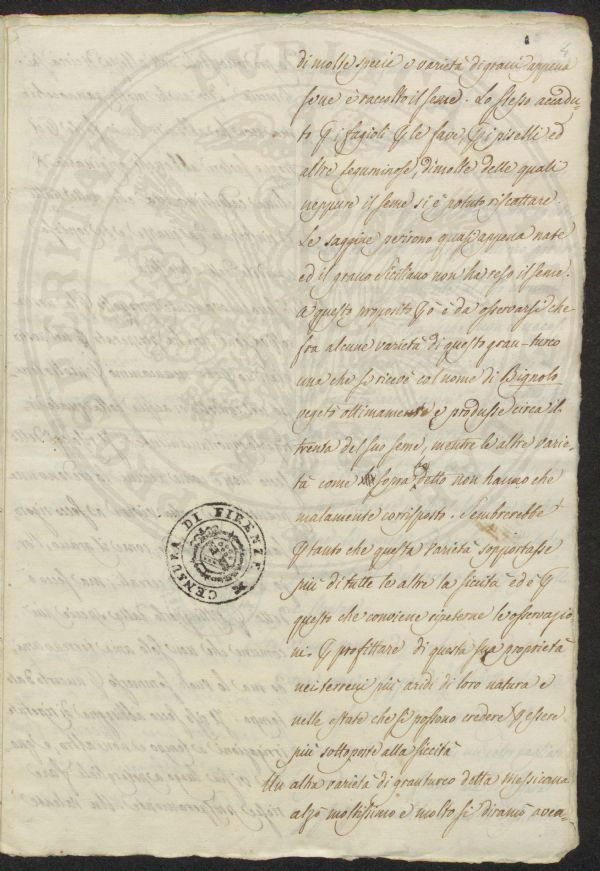 di molte specie e varietà di grani appena
sene è raccolto il seme. Lo stesso accadu-
to p i fagioli p le fave, p i piselli ed
altre leguminose, di molte delle quali
neppure il seme si è potuto riscattare.
Le saggine perirono quasi appena nate
ed il grano Siciliano non ha reso il seme.
A questo proposito però è da osservarsi che
fra alcune varietà di questo gran-turco
una che si ricevè col nome di Bignolo
vegetò ottimamente e produsse circa il
trenta del suo seme, mentre le altre varie-
tà come sopra detto non hanno che
malamente corrisposto. Sembrerebbe
p tanto che questa varietà sopportasse
più di tutte le altre la siccità ed è p
questo che conviene ripeterne le osservazio
ni. p profittare di questa sua proprietà
nei terreni più aridi di loro natura e
nelle estate che si possono credere p essere
più sottoposte alla siccità
Un altra varietà di granturco detta Messicana
alzò moltissimo e molto si diramò avea-
CENSURA DI FIRENZE